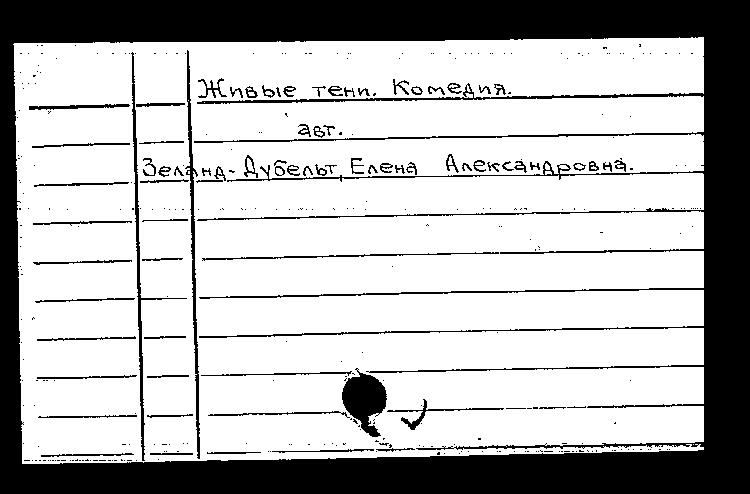 Живые тени. Комедия.
авт.
Зеланд-Дубельт, Елена Александровна.